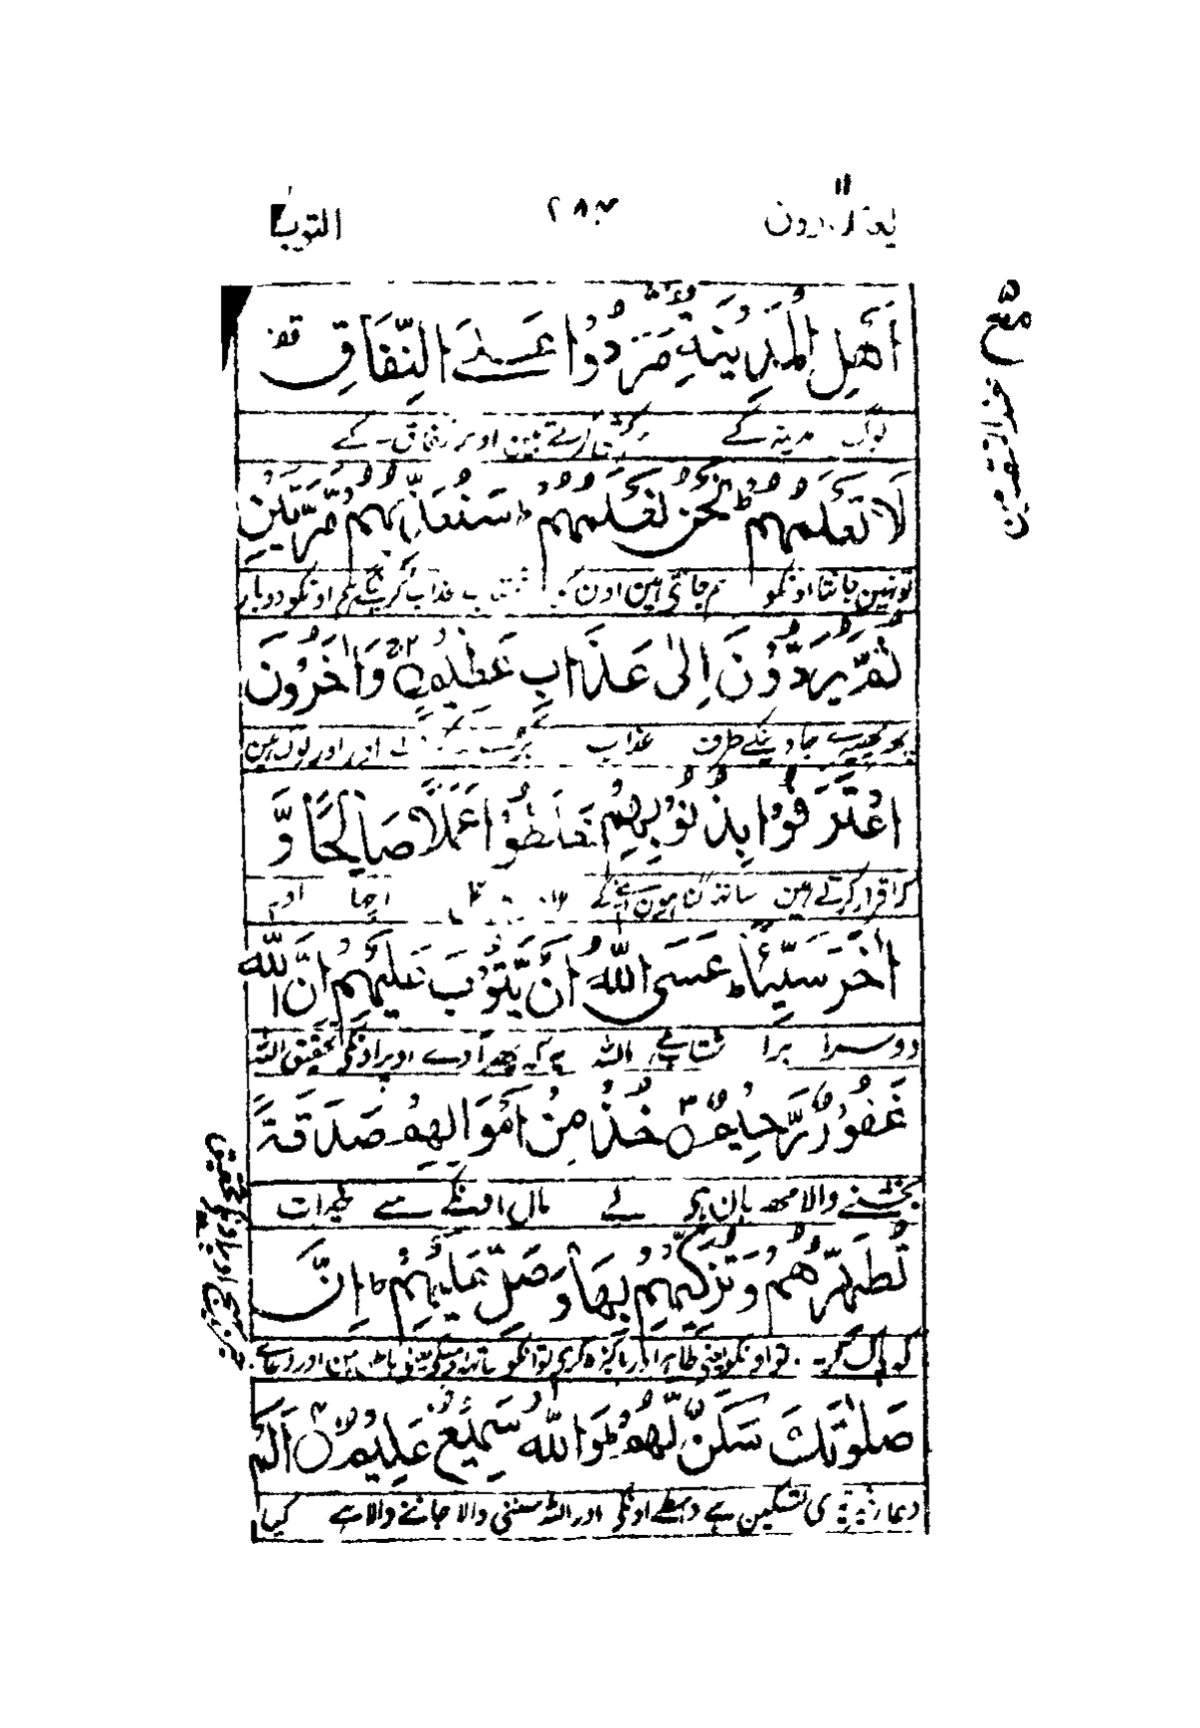 التوبة ٢٨٤ یعتذرون ١١
اَهْلِ الْمَدِيْنَةِ مَرَدُوْا عَلَى النِّفَاقِ قف
لوگ مدینہ کے اوپر نفاق کے
لَا تَعْلَمُهُمْ ط نَحْنُ نَعْلَمُهُمْ ط سَنُعَذِّبُهُمْ مَّرَّتَيْنِ
تو نہین جانتا اونکو ہم جانتے ہین اون شتاب عذاب کرینگے ہم اونکو دوبار
ثُمَّ يُرَدُّوْنَ اِلٰى عَذَابٍ عَظِيْمٍ وَاٰخَرُوْنَ
پھر پھیرے جاوینگے طرف عذاب اور اور لوگ ہین
اعْتَرَفُوْا بِذُنُوْبِهِمْ خَلَطُوْا عَمَلًا صَالِحًا وَّ
کہ اقرار کرتے ہین ساتھ گناہون اپنے کے اچھا اور
اٰخَرَ سَيِّئًا ط عَسَى اللّٰهُ اَنْ يَّتُوْبَ عَلَيْهِمْ اِنَّ اللّٰهَ
دوسرا برا شتاب ہے اللہ یہ کہ پھر آوے اوپر اونکے تحقیق اللہ
غَفُوْرٌ رَّحِيْمٌ خُذْ مِنْ اَمْوَالِهِمْ صَدَقَةً
بخشنے والا مہربان ہی لے مال اونکے سے خیرات
تُطَهِّرُهُمْ وَتُزَكِّيْهِمْ بِهَا وَصَلِّ عَلَيْهِمْ ط اِنَّ
کہ پاک کرے تو اونکو یعنی ظاہر اور پاکیزہ کرے تو انکو ساتھ اوسکے یعنی باطن مین اور دعا
صَلٰوتَكَ سَكَنٌ لَّهُمْ ط وَاللّٰهُ سَمِيْعٌ عَلِيْمٌ اَلَمْ
دعا تیری تسکین ہے واسطے اونکے اور اللہ سننے والا جاننے والا ہے کیا